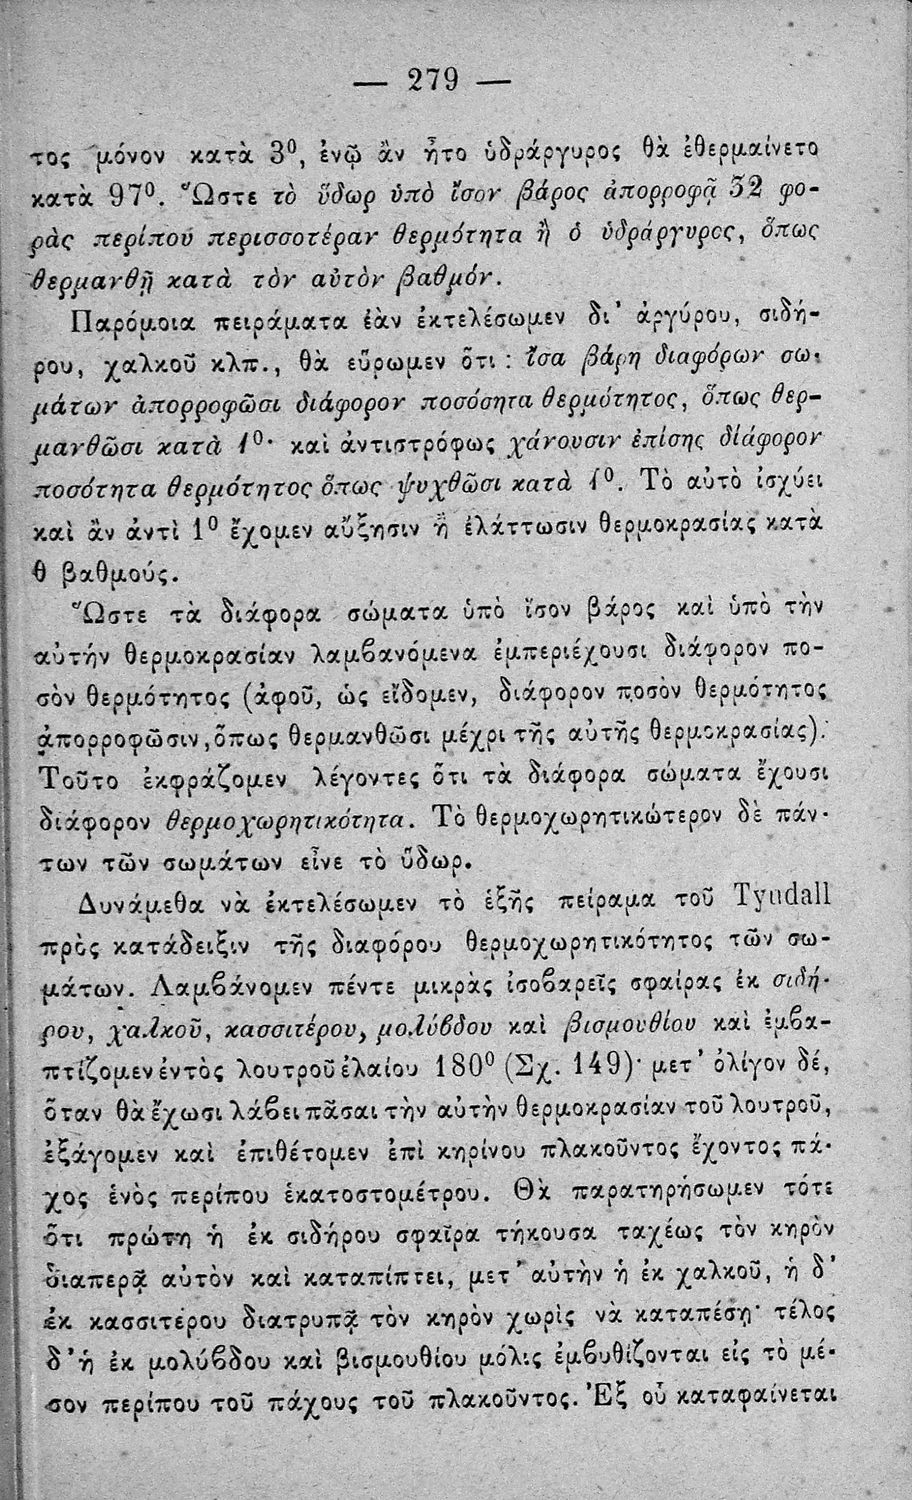 — 279 —
τος μόνον κατὰ 3⁰, ἐνῷ ἂν ἦτο ὑδράργυρος θὰ ἐθερμαίνετο
κατὰ 97⁰. Ὥστε τὸ ὕδωρ ὑπὸ ἴσον βάρος ἀπορροφᾷ 32 φο-
ρὰς περίπου περισσοτέραν θερμότητα ἢ ὁ ὑδράργυρος, ὅπως
θερμανθῇ κατὰ τὸν αὐτὸν βαθμόν.
Παρόμοια πειράματα ἐὰν ἐκτελέσωμεν δι' ἀργύρου, σιδή-
ρου, χαλκοῦ κλπ., θὰ εὕρωμεν ὅτι : ἴσα βάρη διαφόρων σω-
μάτων ἀπορροφῶσι διάφορον ποσόσητα θερμότητος, ὅπως θερ-
μανθῶσι κατὰ 1⁰· καὶ ἀντιστρόφως χάνουσιν ἐπίσης δίάφορον
ποσότητα θερμότητος ὅπως ψυχθῶσι κατὰ 1⁰. Τὸ αὐτὸ ἰσχύει
καὶ ἂν ἀντὶ 1⁰ ἔχομεν αὔξησιν ἢ ἐλάττωσιν θερμοκρασίας κατὰ
θ βαθμούς.
Ὥστε τὰ διάφορα σώματα ὑπὸ ἴσον βάρος καὶ ὑπὸ τὴν
αὐτήν θερμοκρασίαν λαμβανόμενα ἐμπεριέχουσι διάφορον πο-
σὸν θερμότητος (ἀφοῦ, ὡς εἴδομεν, διάφορον ποσὸν θερμότητος
ἀπορροφῶσιν, ὅπως θερμανθῶσι μέχρι τῆς αὐτῆς θερμοκρασίας).
Τοῦτο ἐκφράζομεν λέγοντες ὅτι τὰ διάφορα σώματα ἔχουσι
διάφορον θερμοχωρητικότητα. Τὸ θερμοχωρητικώτερον δὲ πάν-
των τῶν σωμάτων εἶνε τὸ ὕδωρ.
Δυνάμεθα νὰ ἐκτελέσωμεν τὸ ἑξῆς πείραμα τοῦ Tyndall
πρὸς κατάδειξιν τῆς διαφόρου θερμοχωρητικότητος τῶν σω-
μάτων. Λαμβάνομεν πέντε μικρὰς ἰσοβαρεῖς σφαίρας ἐκ σιδή-
ρου, χαλκοῦ, κασσιτέρου, μολύβδου καὶ βισμουθίου καὶ ἐμβα-
πτίζομεν ἐντὸς λουτροῦ ἐλαίου 180⁰ (Σχ. 149)· μετ' ὀλίγον δέ,
ὅταν θὰ ἔχωσι λάβει πᾶσαι τὴν αὐτὴν θερμοκρασίαν τοῦ λουτροῦ,
ἐξάγομεν καὶ ἐπιθέτομεν ἐπὶ κηρίνου πλακοῦντος ἔχοντος πά-
χος ἑνὸς περίπου ἑκατοστομέτρου. Θὰ παρατηρήσωμεν τότε
ὅτι πρώτη ἡ ἐκ σιδήρου σφαῖρα τήκουσα ταχέως τὸν κηρὸν
διαπερᾷ αὐτὸν καὶ καταπίπτει, μετ' αὐτὴν ἡ ἐκ χαλκοῦ, ἡ δ'
ἐκ κασσιτέρου διατρυπᾷ τὸν κηρὸν χωρὶς νὰ καταπέσῃ· τέλος
δ' ἡ ἐκ μολύβδου καὶ βισμουθίου μόλις ἐμβυθίζονται εἰς τὸ μέ-
σον περίπου τοῦ πάχους τοῦ πλακοῦντος. Ἐξ οὗ καταφαίνεται